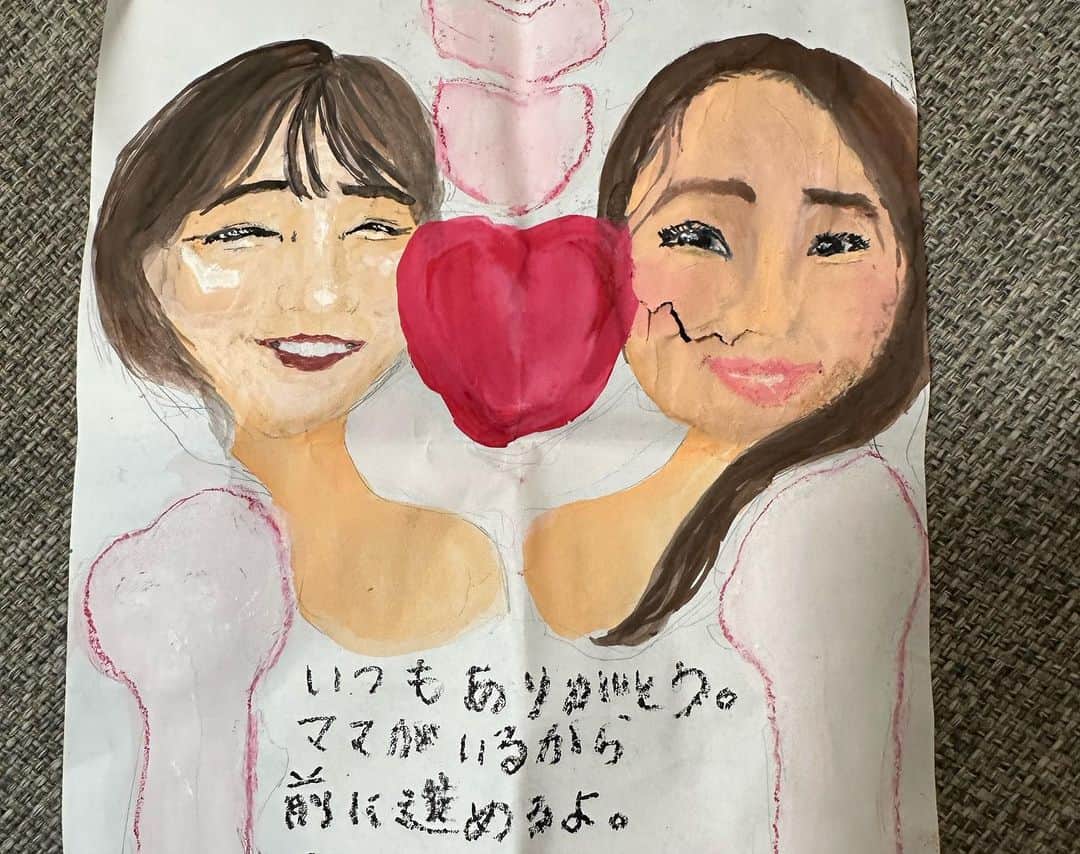 いつもありがとう。
ママがいるから
前に進めるよ。